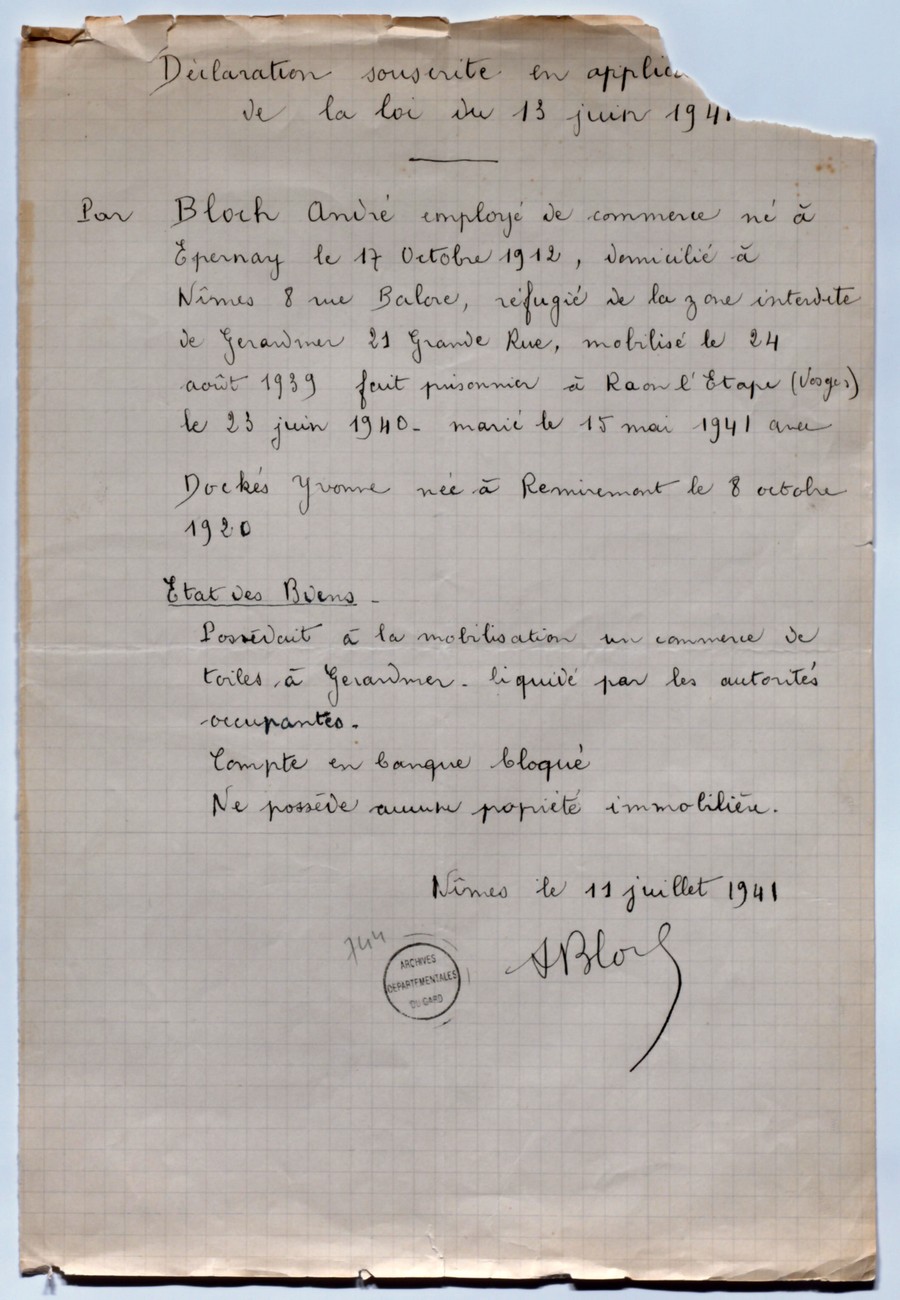 Déclaration souscrite en applica
de la loi du 13 juin 1941
Par Bloch André employé de commerce né à
Epernay le 17 Octobre 1912, domicilié à
Nîmes 8 rue Balore, réfugié de la zone interdite
de Gerardmer 21 Grande Rue, mobilisé le 24
août 1939 fait prisonnier à Raon l'Etape (Vosges)
le 23 juin 1940 - marié le 15 mai 1941 avec
Dockés Yvonne née à Remiremont le 8 octobre
1920
Etat des Biens -
Possédait à la mobilisation un commerce de
toiles à Gerardmer - liquidé par les autorités
occupantes -
Compte en banque bloqué
Ne possède aucune popriété immobilière.
Nîmes le 11 juillet 1941
ABloch
744
ARCHIVES
DEPARTEMENTALES
DU GARD